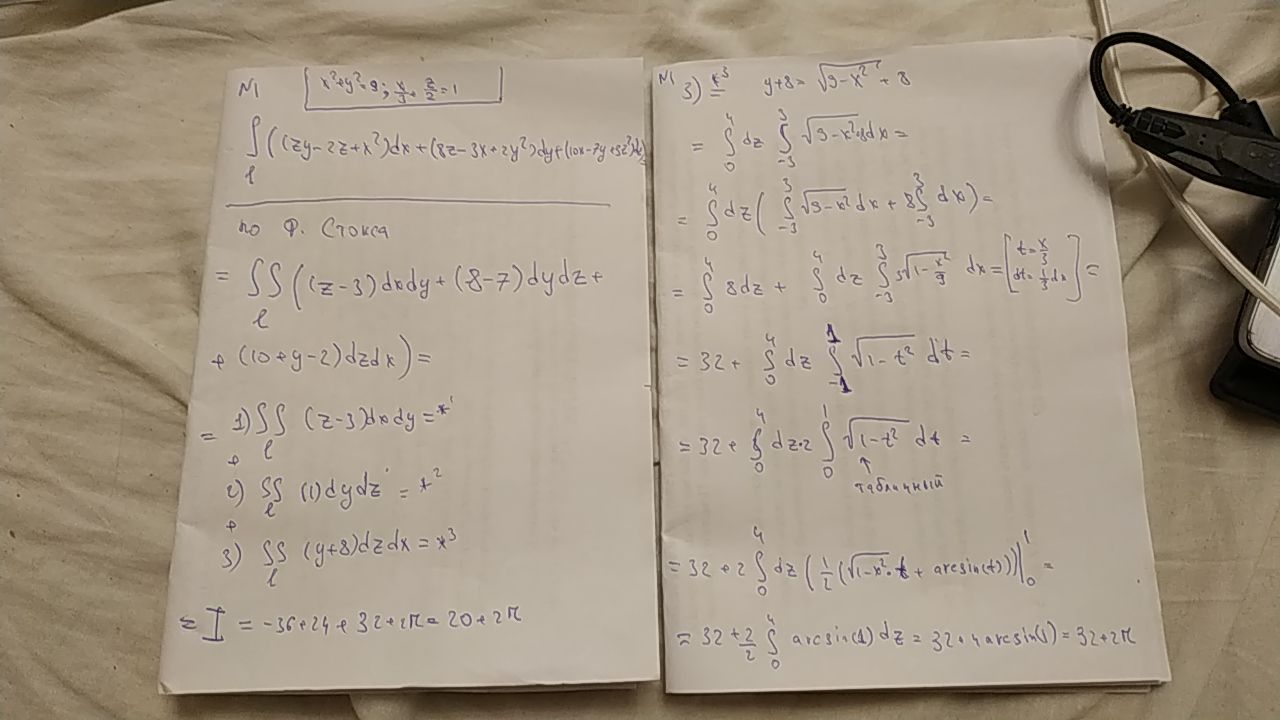 N1 x²+y²=9; x/3 + z/2 = 1
∫ₗ ((zy-2z+x²)dx+(8z-3x+2y²)dy+(10x-7y+3z²)dz)
по Ф. Стокса
= ∫∫ₗ ((z-3)dxdy+(8-7)dydz+
+ (10+y-2)dzdx) =
= 1) ∫∫ₗ (z-3)dxdy = *¹
+
2) ∫∫ₗ (1)dydz = *²
+
3) ∫∫ₗ (y+8)dzdx = *³
= I = -36+24+32+2π = 20+2π
N1 3) *³ y+8 = √(9-x²) + 8
= ∫₀⁴ dz ∫₋₃³ √(9-x²)·8dx =
= ∫₀⁴ dz ( ∫₋₃³ √(9-x²) dx + 8 ∫₋₃³ dx ) =
= ∫₀⁴ 8dz + ∫₀⁴ dz ∫₋₃³ 3√(1-x²/9) dx = [t = x/3 dt = 1/3 dx] =
= 32 + ∫₀⁴ dz ∫₋₁¹ √(1-t²) dt =
= 32 + ∫₀⁴ dz·2 ∫₀¹ √(1-t²) dt =
↑
табличный
= 32 + 2 ∫₀⁴ dz (1/2 (√(1-x²)·t + arcsin(t)))|₀¹ =
= 32 + 2/2 ∫₀⁴ arcsin(1) dz = 32+4arcsin(1) = 32+2π